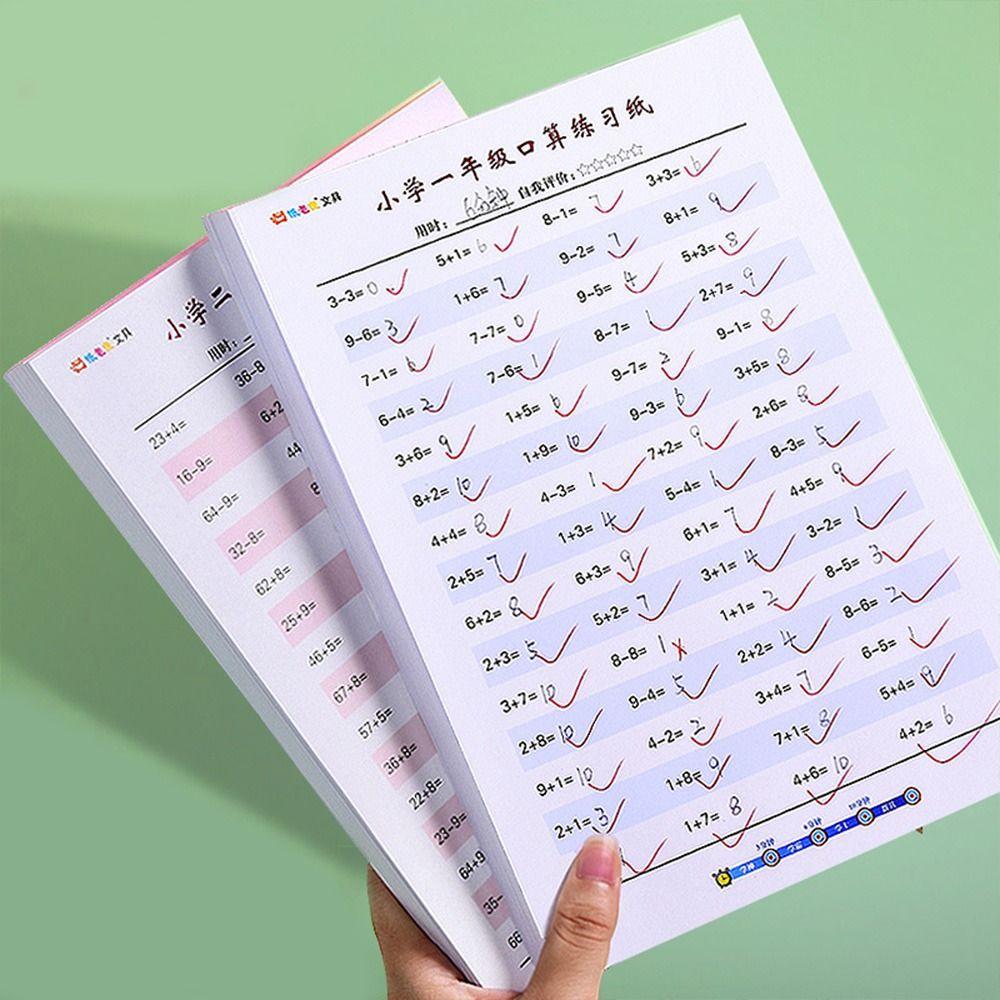 纸老虎文具
小学一年级口算练习纸
用时: 6分钟 自我评价:☆☆☆☆☆
3-3=0 5+1=6 8-1=7 3+3=6
9-6=3 1+6=7 9-2=7 8+1=9
7-1=6 7-7=0 9-5=4 5+3=8
6-4=2 7-6=1 8-7=1 2+7=9
3+6=9 1+5=6 9-7=2 9-1=8
8+2=10 1+9=10 9-3=6 3+5=8
4+4=8 4-3=1 7+2=9 2+6=8
2+5=7 1+3=4 5-4=1 8-3=5
6+2=8 6+3=9 6+1=7 4+5=9
2+3=5 5+2=7 3+1=4 3-2=1
3+7=10 8-8=1 1+1=2 8-5=3
2+8=10 9-4=5 2+2=4 8-6=2
9+1=10 4-2=2 3+4=7 6-5=1
2+1=3 1+8=9 7+1=8 5+4=9
1+7=8 4+6=10 4+2=6
纸老虎文具
小学二
用时:
23+4= 36-8
16-9= 6+2
64-9= 44
32-8= 8
62+8=
25+9=
46+5=
67+8=
57+5=
36+8=
22+8=
23-9=
64+9
35-
66